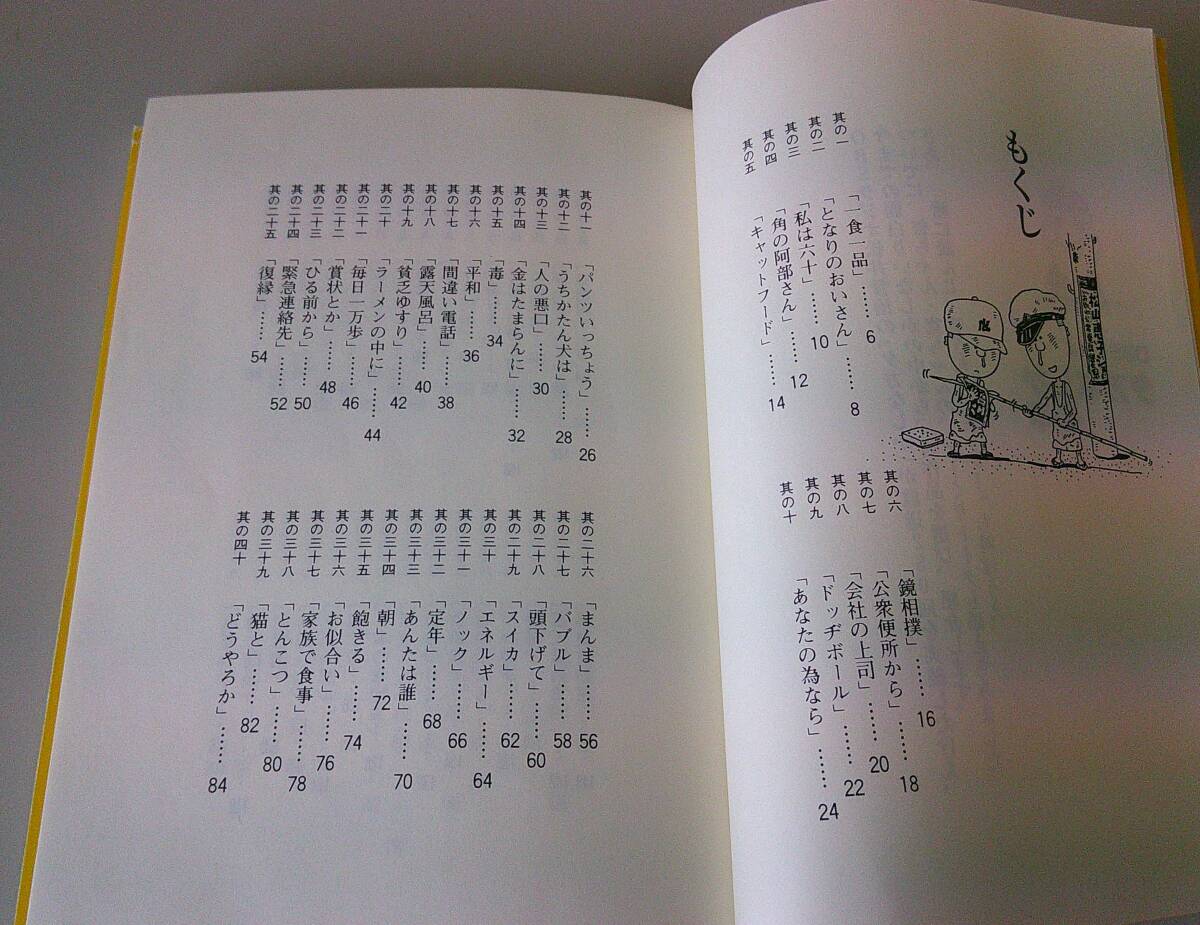 もくじ
松山恵子ショ
其の一 「一食一品」……6
其の二 「となりのおいさん」……8
其の三 「私は六十」……10
其の四 「角の阿部さん」……12
其の五 「キャットフード」……14
其の六 「鏡相撲」……16
其の七 「公衆便所から」……18
其の八 「会社の上司」……20
其の九 「ドッヂボール」……22
其の十 「あなたの為なら」……24
其の十一 「パンツいっちょう」……26
其の十二 「うちかたん犬は」……28
其の十三 「人の悪口」……30
其の十四 「金はたまらんに」……32
其の十五 「毒」……34
其の十六 「平和」……36
其の十七 「間違い電話」……38
其の十八 「露天風呂」……40
其の十九 「貧乏ゆすり」……42
其の二十 「ラーメンの中に」……44
其の二十一 「毎日一万歩」……46
其の二十二 「賞状とか」……48
其の二十三 「ひる前から」……50
其の二十四 「緊急連絡先」……52
其の二十五 「復縁」……54
其の二十六 「まんま」……56
其の二十七 「バブル」……58
其の二十八 「頭下げて」……60
其の二十九 「スイカ」……62
其の三十 「エネルギー」……64
其の三十一 「ノック」……66
其の三十二 「定年」……68
其の三十三 「あんたは誰」……70
其の三十四 「朝」……72
其の三十五 「飽きる」……74
其の三十六 「お似合い」……76
其の三十七 「家族で食事」……78
其の三十八 「とんこつ」……80
其の三十九 「猫と」……82
其の四十 「どうやろか」……84